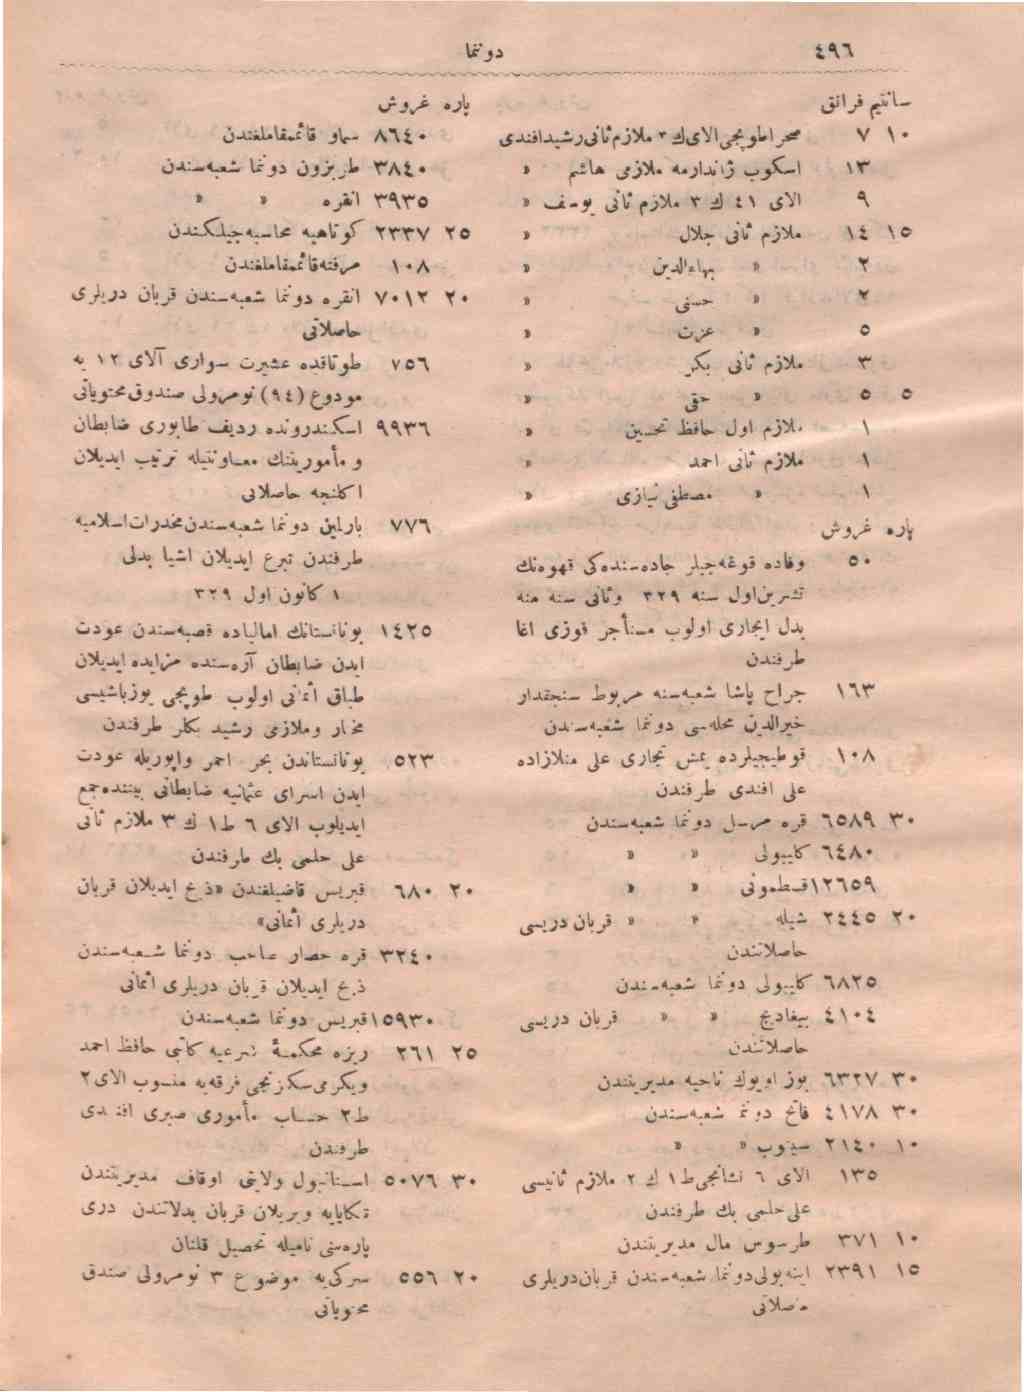 ٤٩٦
دوننما
سانتيم فرانق
١٠ ٧ صحرا طوپجی الای ك ٣ ملازم ثانی رشید افندی
١٣ اسکوب ژاندارمه ملازمی هاشم »
٩ الای ٤١ ك ٣ ملازم ثانی یوسف »
١٥ ١٤ ملازم ثانی جلال »
٢ » بهاءالدین »
٢ » حسنی »
٥ » عزت »
٣ ملازم ثانی بکر »
٥ ٥ » حقی »
١ ملازم اول حافظ تحسین »
١ ملازم ثانی احمد »
١ » مصطفی نیازی »
پاره غروش
٥٠ وفاده قوغه‌جیلر جاده‌سنده‌کی قهوه‌نك
تشرین‌اول سنه ٣٢٩ وثانی سنه منه
بدل ایجاری اولوب مستأجر فوزی اغا
طرفندن
١٦٣ جراح پاشا شعبه‌سنه مربوط سنجقدار
خیرالدین محله‌سی دوننما شعبه‌سندن
١٠٨ قوطیجیلرده یمش تجاری علی منلازاده
علی افندی طرفندن
٣٠ ٦٥٨٩ قره مرسل دوننما شعبه‌سندن
٦٤٨٠ کلیبولی » »
١٢٦٥٩ قسطمونی » »
٢٠ ٢٤٤٥ شیله » » قربان دریسی
حاصلاتندن
٦٨٢٥ کلیبولی دوننما شعبه‌سندن
٤١٠٤ بیغادیج » » قربان دریسی
حاصلاتندن
٣٠ ٦٣٢٧ بوز اویوك ناحیه مدیریتندن
٣٠ ٤١٧٨ فاتح دوننما شعبه‌سندن
١٠ ٢١٤٠ سینوب » »
١٣٥ الای ٦ نشانجی ط ١ ك ٢ ملازم ثانیسی
علی حلمی بك طرفندن
١٠ ٣٧١ طرسوس مال مدیریتندن
١٥ ٢٣٩١ اینه‌بولی دوننما شعبه‌سندن قربان دریلری
حاصلاتی
پاره غروش
٨٦٤٠ سماو قائممقاملغندن
٣٨٤٠ طربزون دوننما شعبه‌سندن
٣٩٣٥ انقره » »
٢٥ ٢٣٣٧ کوتاهیه محاسبه‌جیلکندن
١٠٨ مرفته قائممقاملغندن
٢٠ ٧٠١٢ انقره دوننما شعبه‌سندن قربان دریلری
حاصلاتی
٧٥٦ طوتاقده عشیرت سواری آلای ١٢ یه
مودوع (٩٤) نومرولی صندوق محتویاتی
٩٩٣٦ اسکندرونده ردیف طابوری ضابطان
و مأمورینك معاونتیله ترتیب ایدیلان
اکلنجه حاصلاتی
٧٧٦ بارطین دوننما شعبه‌سندن مخدرات‌اسلامیه
طرفندن تبرع ایدیلان اشیا بدلی
١ کانون اول ٣٢٩
١٤٢٥ یونانستانك امالیاده قصبه‌سندن عودت
ایدن ضابطان آره‌سنده مزایده ایدیلان
طباقی اثمانی اولوب طوپجی یوزباشیسی
مختار و ملازمی رشید بکلر طرفندن
٥٢٣ یونانستاندن بحر احمر واپوریله عودت
ایدن اسرای عثمانیه ضابطانی بیننده جمع
ایدیلوب الای ٦ ط ١ ك ٣ ملازم ثانی
علی حلمی بك طرفندن
٢٠ ٦٨٠ قبریس قاضیلغندن «ذبح ایدیلان قربان
دریلری اثمانی»
٣٢٤٠ قره حصار صاحب دوننما شعبه‌سندن
ذبح ایدیلان قربان دریلری اثمانی
١٥٩٣٠ قبریس دوننما شعبه‌سندن
٢٥ ٢٦١ ریزه محکمهٔ شرعیه کاتبی حافظ احمد
ویکرمی سکزنجی فرقه‌یه منسوب الای ٢
ط ٢ حساب مأموری صبری افندی
طرفندن
٣٠ ٥٠٧٦ استانبول ولایتی اوقاف مدیریتندن
تکایایه ویریلان قربان بدلاتندن دری
پاره‌سی نامیله تحصیل قلنان
٢٠ ٥٥٦ سرکی‌یه موضوع ٣ نومرولی صندق
محتویاتی